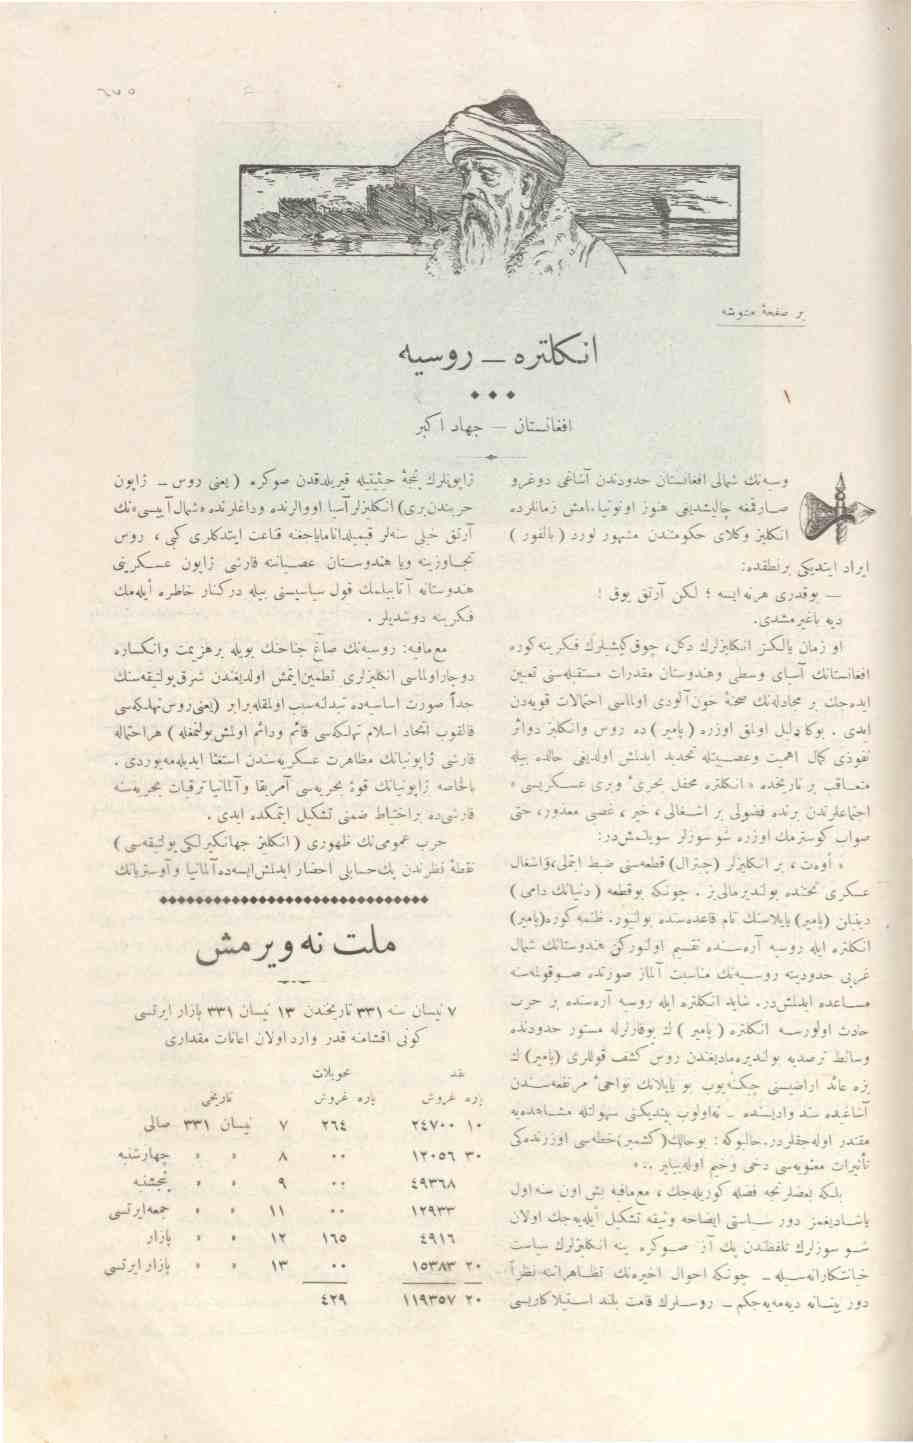 بر صفحهٔ منویشه
انكلتره — روسیه
افغانستان — جهاد اكبر
وسیه‌نك شمالی افغانستان حدودندن آشاغی دوغرو
صارقمغه چالیشدیغی هنوز اونوتیلمامش زمانلرده
انكلیز وكلای حكومتندن مشهور لورد (بالفور)
ایراد ایتدیكی برنطقده:
— بوقدری هرنه‌ایسه ؛ لكن آرتق یوق !
دیه باغیرمشدی.
او زمان یالكز انكلیزلرك دكل، چوق كیشیلرك فكرینه‌كوره
افغانستانك آسیای وسطی وهندوستان مقدرات مستقبله‌سنی تعیین
ایده‌جك بر مجادله‌نك صحنهٔ خون‌آلودی اولماسی احتمالات قویه‌دن
ایدی . بوكا دلیل اولمق اوزره (پامیر) ده روس وانكلیز دوائر
نفوذی كمال اهمیت وعصبیتله تحدید ایدلمش اولدیغی حالده بیله
متعاقب بر تاریخده «انكلتره محفل بحری و بری عسكریسی»
اجتماعلرندن برنده فضولی بر اشغالی، خیر ، غصبی معذور، حتی
صواب كوسترمك اوزره شو سوزلر سویلنمش‌در:
« أوه‌ت ، بز انكلیزلر (چترال) قطعه‌سنی ضبط ایتملی، واشغال
عسكری تحتنده بولندیرمالی‌یز . چونكه بوقطعه (دنیانك دامی)
دینیلن (پامیر) یایلاسنك تام قاعده‌سنده بولنیور. ظنمه كوره (پامیر)
انكلتره ایله روسیه آره‌سنده تقسیم اولنوركن هندوستانك شمال
غربی حدودینه روسیه‌نك مناسبت آلماز صورتده صوقولمه‌سنه
مساعده ایدلمش‌در. شاید انكلتره ایله روسیه آره‌سنده بر حرب
حادث اولورسه انكلتره (پامیر) ك بوقارلرله مستور حدودنده
وسائط ترصدیه بولندیره‌مادیغندن روس كشف قوللری (پامیر) ك
بزه عائد اراضیسنی چیكنه‌یوب بو یایلانك نواحیٔ مرتفعه‌سندن
آشاغیده سند وادیسنده — نه‌اولوب بیتدیكنی سهولتله مشاهده‌یه
مقتدر اوله‌جقلردر. حالبوكه : بوحالك (كشمیر) خطه‌سی اوزرنده‌كی
تأثیرات معنویه‌سی دخی وخیم اوله‌بیلیر ..»
بلكه بعضلرنجه فضله كوریله‌جك ، مع‌مافیه بش اون سنه اول
یاشادیغمز دور سیاستی ایضاحه وثیقه تشكیل ایله‌یه‌جك اولان
شو سوزلرك تلفظندن پك آز صوكره ینه انكلیزلرك سیاست
خیانتكارانه‌سیله — چونكه احوال اخیره‌نك تظاهراتنه نظراً
دور بینانه دیه‌مه‌یه‌جكم — روسلرك قامت بلند استیلاكاریسی
ژاپونلرك پنجهٔ حیثیتیله قیریلدقدن صوكره ( یعنی روس — ژاپون
حربندن بری) انكلیزلر آسیا اووالرنده وداغلرنده «شمال آییسی» نك
آرتق خیلی سنه‌لر قیمیلدانامایاجغنه قناعت ایتدكلری كبی ، روس
تجاوزینه ویا هندوستان عصیاننه قارشی ژاپون عسكرینی
هندوستانه آتابیلمك قول سیاسیسنی بیله دركنار خاطره ایله‌مك
فكرینه دوشدیلر .
مع‌مافیه: روسیه‌نك صاغ جناحنك بویله برهزیمت وانكساره
دوچار اولماسی انكلیزلری تطمین ایتمش اولدیغندن شرق پولتیقه‌سنك
جداً صورت اساسیه‌ده تبدلنه سبب اولمقله برابر (یعنی روس تهلكه‌سی
قالقوب اتحاد اسلام تهلكه‌سی قائم ودائم اولمش بولنمغله) هر احتماله
قارشی ژاپونیانك مظاهرت عسكریه‌سندن استغنا ایدیله‌مه‌یوردی .
بالخاصه ژاپونیانك قوهٔ بحریه‌سی آمریقا وآلمانیا ترقیات بحریه‌سنه
قارشی ده براحتیاط ضمنی تشكیل ایتمكده ایدی .
حرب عمومی‌نك ظهوری ( انكلیز جهانكیرلكی پولتیقه‌سی )
نقطهٔ نظرندن پك حسابلی احضار ایدلمش ایسه‌ده آلمانیا وآوستریانك
ملت نه ویرمش
٧ نیسان سنه ٣٣١ تاریخندن ١٣ نیسان ٣٣١ بازار ایرتسی
كونی اقشامنه قدر وارد اولان اعانات مقداری
نقد حویلات
پاره غروش پاره غروش تاریخی
١٠ ٢٤٧٠٠ ٢٦٤ ٧ نیسان ٣٣١ صالی
٣٠ ١٢٠٥٦ ٠٠ ٨ » » چهارشنبه
٤٩٣٦٨ ٠٠ ٩ » » پنجشنبه
١٢٩٣٣ ٠٠ ١١ » » جمعه‌ایرتسی
٤٩١٦ ١٦٥ ١٢ » » پازار
٢٠ ١٥٣٨٣ ٠٠ ١٣ » » پازار ایرتسی
٢٠ ١١٩٣٥٧ ٤٢٩